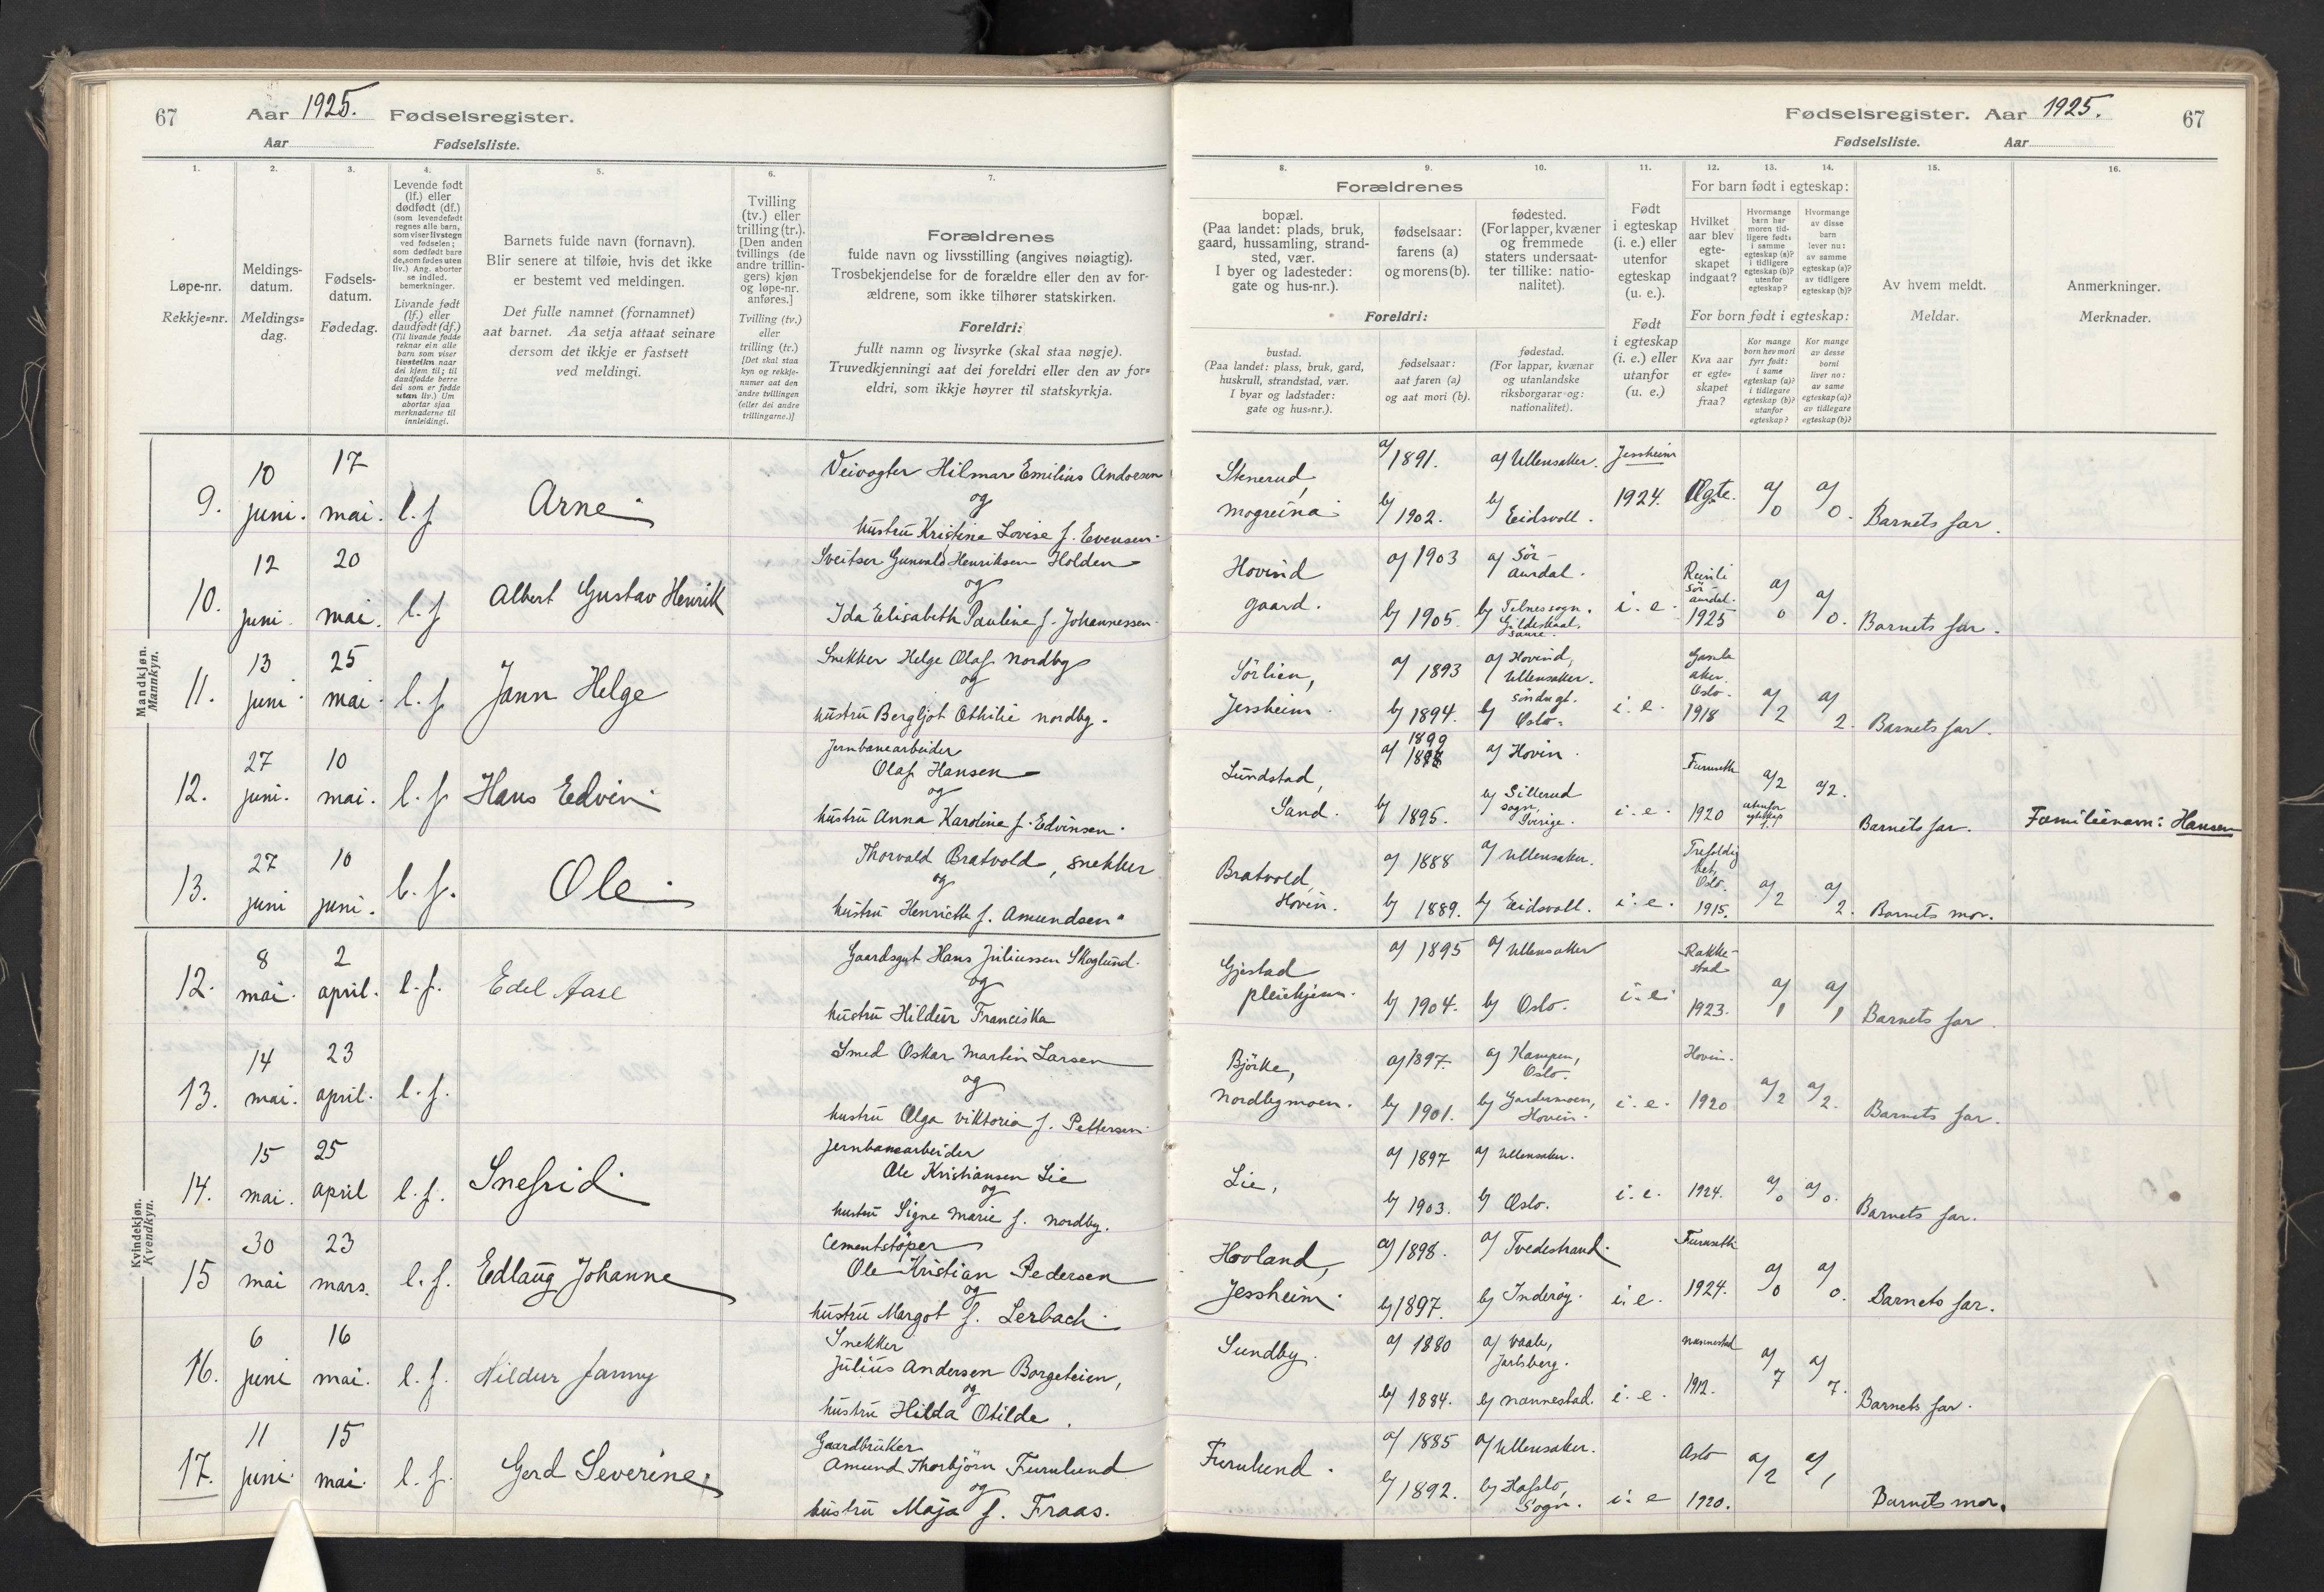 67 Aar 1925. Fødselsregister.
Aar Fødselsliste.
Fødselsregister. Aar 1925. 67
Fødselsliste. Aar
1. 2. 3. 4. 5. 6. 7.
Løpe-nr.
Rekkje=nr.
Meldings-
datum.
Meldings=
dag.
Fødsels-
datum.
Fødedag.
Levende født
(lf.) eller
dødfødt (df.)
(som levendefødt
regnes alle barn,
som viser livstegn
ved fødselen;
som dødfødt bare
de, som fødes uten
liv.) Ang. aborter
se indled.
bemerkninger.
Livande født
(lf.) eller
daudfødt (df.)
(Til livande fødde
reknar ein alle
barn som viser
livsteikn naar
dei kjem til; til
daudfødde berre
dei som er fødde
utan liv.) Um
abortar sjaa
merknaderne til
innleidingi.
Barnets fulde navn (fornavn).
Blir senere at tilføie, hvis det ikke
er bestemt ved meldingen.
Det fulle namnet (fornamnet)
aat barnet. Aa setja attaat seinare
dersom det ikkje er fastsett
ved meldingi.
Tvilling
(tv.) eller
trilling (tr.).
[Den anden
tvillings (de
andre trillin-
gers) kjøn
og løpe-nr.
anføres.]
Tvilling (tv.)
eller
trilling (tr.)
[Det skal staa
kyn og rekkje-
numer aat den
andre tvillingen
(eller dei andre
trillingarne.)]
Forældrenes
fulde navn og livsstilling (angives nøiagtig).
Trosbekjendelse for de forældre eller den av for-
ældrene, som ikke tilhører statskirken.
Foreldri:
fullt namn og livsyrke (skal staa nøgje).
Truvedkjenningi aat dei foreldri eller den av for=
eldri, som ikkje høyrer til statskyrkja.
8. 9. 10. 11. 12. 13. 14. 15. 16.
Forældrenes
bopæl.
(Paa landet: plads, bruk,
gaard, hussamling, strand-
sted, vær.
I byer og ladesteder:
gate og hus-nr.).
fødselsaar:
farens (a)
og morens (b).
fødested.
(For lapper, kvæner
og fremmede
staters undersaat-
ter tillike: natio-
nalitet).
Foreldri:
bustad.
(Paa landet: plass, bruk, gard,
huskrull, strandstad, vær.
I byar og ladstader:
gate og hus=nr.).
fødselsaar:
aat faren (a)
og aat mori (b).
fødestad.
(For lappar, kvænar
og utanlandske
riksborgarar og:
nationalitet).
Født
i egteskap
(i. e.) eller
utenfor
egteskap
(u. e.).
Født
i egteskap
(i. e.) eller
utanfor
(u. e.)
For barn født i egteskap:
Hvilket
aar blev
egte-
skapet
indgaat?
Hvormange
barn har
moren tid-
ligere født:
i samme
egteskap (a)?
i tidligere
egteskap (b)?
utenfor
egteskap?
Hvormange
av disse
barn
lever nu:
av samme
egteskap (a)?
av tidligere
egteskap (b)?
For born født i egteskap:
Kva aar
er egte-
skapet
fraa?
Kor mange
born hev mori
fyrr født:
i same
egteskap (a)?
i tidlegare
egteskap (b)?
utanfor
egteskap?
Kor mange
av desse
borni
liver no:
av same
egteskap (a)?
av tidlegare
egteskap (b)?
Av hvem meldt.
Meldar.
Anmerkninger.
Merknader.
Mandkjøn.
Mannkyn.
9. 10 juni. 17 mai. l. f. Arne
Veivogter Hilmar Emilius Andresen
og
hustru Kristine Lovise f. Evensen.
Stenerud,
mogreina
a/ 1891. a/ Ullensaker. Jessheim
b/ 1902. b/ Eidsvoll. 1924. Ægte. a/0 a/0. Barnets far.
10. 12 juni. 20 mai. l. f. Albert Gustav Henrik
Sveitser Gunvald Henriksen Holden
og
Ida Elisabeth Pauline f. Johannessen.
Hovind
gaard.
a/ 1903 a/ Sör-
aurdal.
b/ 1905. b/ sogn.
Gildeskaal.
i. e. Reinli
Sör
aurdal.
1925 a/0 a/0. Barnets far.
11. 13 juni. 25 mai. l. f. Jann Helge
Snekker Helge Olaf Nordby
og
hustru Bergljot Othilie nordby.
Sörlien,
Jessheim.
a/ 1893 a/ Hovind,
Ullensaker.
b/ 1894. b/
Oslo.
i. e. Gamle
aker.
Oslo.
1918 a/2 a/2. Barnets far.
12. 27 juni. 10 mai. l. f. Hans Edvin
Jernbanearbeider
Olaf Hansen
og
hustru Anna Karoline f. Edvinsen.
Lundstad,
Sand.
1899
a/ a/ Hovin.
b/ 1895. b/ Sillerud
sogn,
Sverige.
i. e. Furuseth
1920 a/2
utenfor
egteskap
a/2. Barnets far. Familienavn: Hansen
13. 27 juni 10 juni. l. f. Ole
Thorvald Bratvold, snekker
og
hustru Henriette f. Amundsen.
Bratvold,
Hovin.
a/ 1888 a/ Ullensaker.
b/ 1889. b/ Eidsvoll. i. e. Trefoldig
het,
Oslo.
1915. a/2 a/2. Barnets mor.
Kvindekjøn.
Kvendkyn.
12. 8 mai. 2 april. l. f. Edel Aase
Gaardsgut Hans Juliussen Skoglund.
og
hustru Hildur Franciska
Gjestad
pleiehjem.
a/ 1895 a/ Ullensaker
b/ 1904. b/ Oslo. i. e. Rakke-
stad
1923. a/1 a/1 Barnets far.
13. 14 mai. 23 april. l. f.
Smed Oskar Martin Larsen
og
hustru Olga Viktoria f. Pettersen.
Björke,
Nordbymoen.
a/ 1897. a/ Kampen,
Oslo.
b/ 1901. b/ Gardermoen,
Hovin.
i. e. Hovin.
1920 a/2 a/2. Barnets far.
14. 15 mai. 25 april l. f. Snefrid
Jernbanearbeider
Ole Kristiansen Lie
og
hustru Signe Marie f. Nordby.
Lie,
a/ 1897 a/ Ullensaker.
b/ 1903. b/ Oslo. i. e. 1924. a/0 a/0. Barnets far.
15 30 mai 23 mars. l. f. Edlaug Johanne
Cementstöper
Ole Kristian Pedersen
og
hustru Margot f. Lerbach.
Hovland,
Jessheim.
a/ 1898. a/ Tvedestrand.
b/ 1897. b/ Inderöy. i. e. Furuseth
1924. a/0 a/0. Barnets far.
16. 6 juni 16 mai. l. f. Hildur Janny
Snekker
Julius Andersen Borgeteien,
og
hustru Hilda Otilde.
Sundby.
a/ 1880 a/ Vaale,
Jarlsberg.
b/ 1884. b/ Nannestad. i. e. Nannestad
1912. a/7 a/7. Barnets far.
17. 11 juni. 15 mai. l. f. Gerd Severine
Gaardbruker
Amund Thorbjörn Furulund
og
hustru Maja f. Fraas.
Furulund.
a/ 1885 a/ Ullensaker.
b/ 1892. b/ Hafslo,
Sogn.
i. e Oslo
1920. a/2 a/1 Barnets mor.